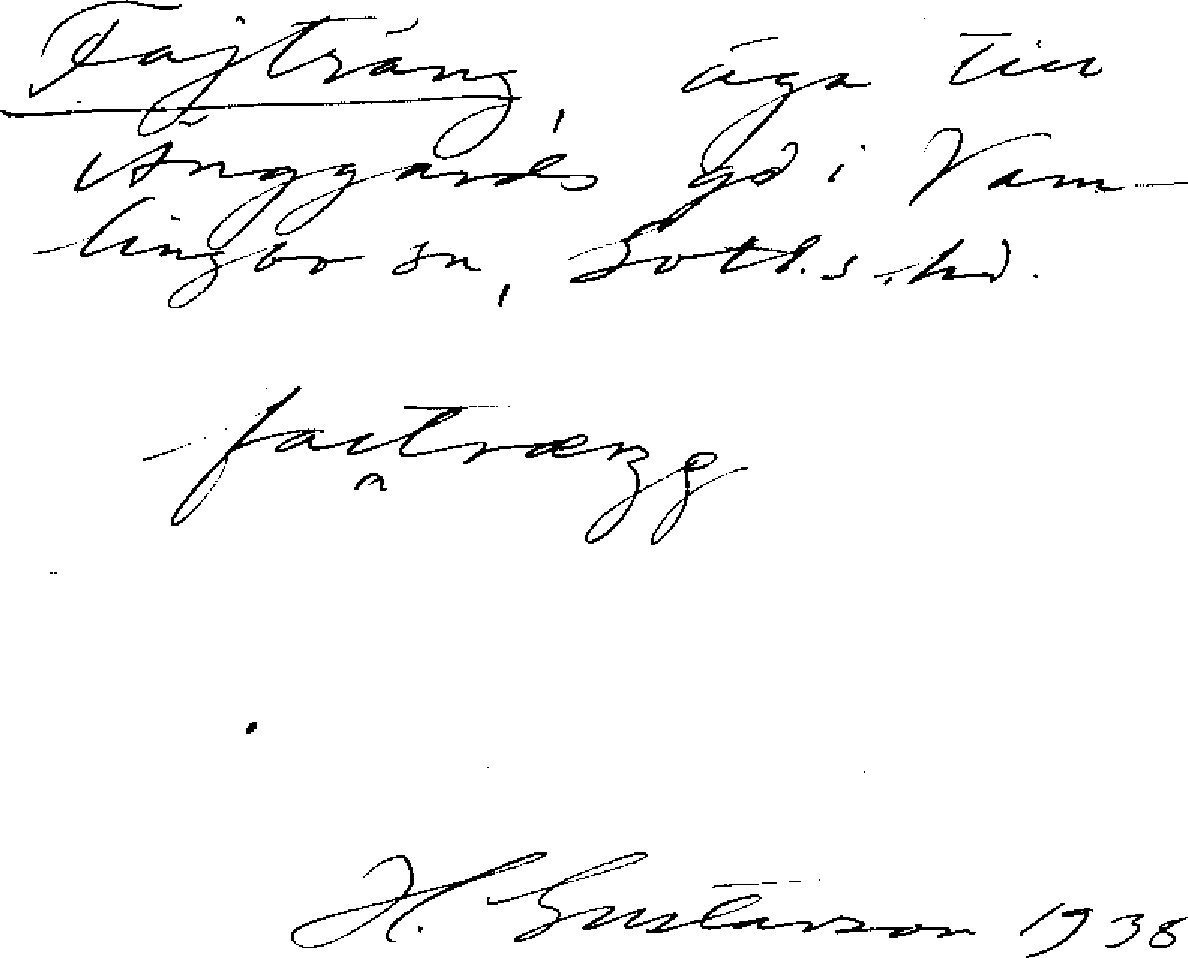 Fajträng, äga till
Änggårds gd i Vam-
lingbo sn, Gotl.s. hd.
faitræŋg
H. Gustavson 1938